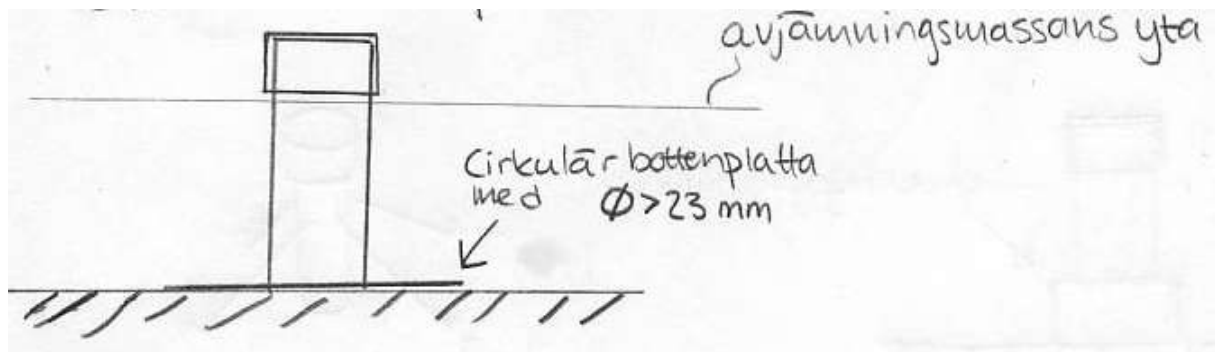 avjämningsmassans yta
Cirkulär bottenplatta
med Ø>23 mm